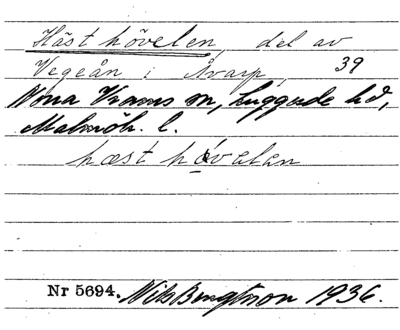 Hästhövelen, del av
Vegeån i Åvarp, 39
Norra Vrams sn, Luggude hd,
Malmöh. l.
hæst hövelen
Nr 5694. Nils Bengtsson 1936.